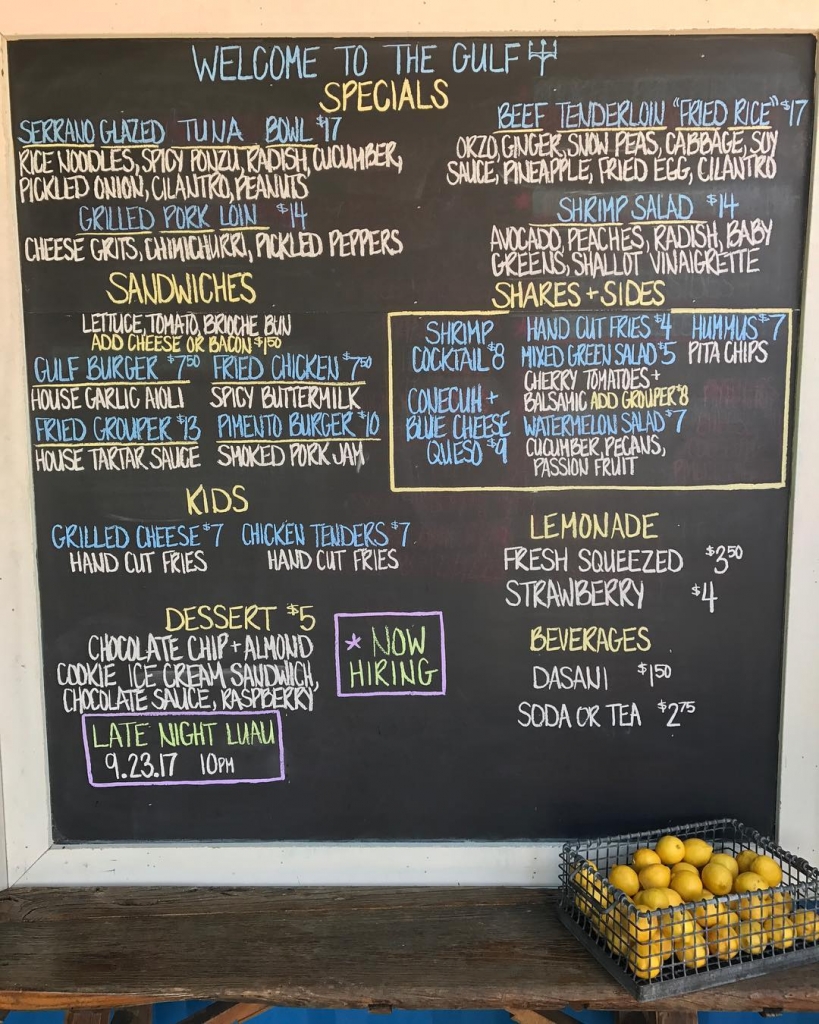 WELCOME TO THE GULF
SPECIALS
SERRANO GLAZED TUNA BOWL $17
RICE NOODLES, SPICY PONZU, RADISH, CUCUMBER,
PICKLED ONION, CILANTRO, PEANUTS
GRILLED PORK LOIN $14
CHEESE GRITS, CHIMICHURRI, PICKLED PEPPERS
BEEF TENDERLOIN "FRIED RICE" $17
ORZO, GINGER, SNOW PEAS, CABBAGE, SOY
SAUCE, PINEAPPLE, FRIED EGG, CILANTRO
SHRIMP SALAD $14
AVOCADO, PEACHES, RADISH, BABY
GREENS, SHALLOT VINAIGRETTE
SANDWICHES
LETTUCE, TOMATO, BRIOCHE BUN
ADD CHEESE OR BACON $1.50
GULF BURGER $7.50
HOUSE GARLIC AIOLI
FRIED CHICKEN $7.50
SPICY BUTTERMILK
FRIED GROUPER $13
HOUSE TARTAR SAUCE
PIMENTO BURGER $10
SMOKED PORK JAM
SHARES + SIDES
SHRIMP
COCKTAIL $8
CONECUH +
BLUE CHEESE
QUESO $9
HAND CUT FRIES $4
MIXED GREEN SALAD $5
CHERRY TOMATOES +
BALSAMIC ADD GROUPER $8
WATERMELON SALAD $7
CUCUMBER, PECANS,
PASSION FRUIT
HUMMUS $7
PITA CHIPS
KIDS
GRILLED CHEESE $7
HAND CUT FRIES
CHICKEN TENDERS $7
HAND CUT FRIES
DESSERT $5
CHOCOLATE CHIP + ALMOND
COOKIE ICE CREAM SANDWICH,
CHOCOLATE SAUCE, RASPBERRY
* NOW
HIRING
LATE NIGHT LUAU
9.23.17 10PM
LEMONADE
FRESH SQUEEZED $3.50
STRAWBERRY $4
BEVERAGES
DASANI $1.50
SODA OR TEA $2.75